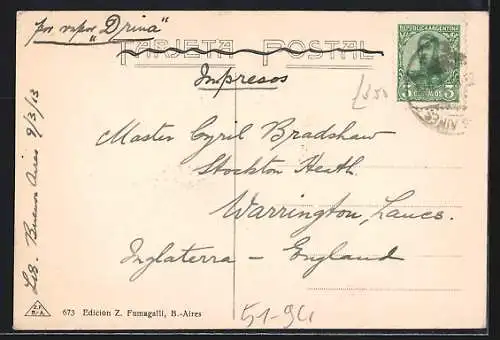 por vapor "Drina"
TARJETA POSTAL
Impresos
REPUBLICA ARGENTINA
5 CENTAVOS 5
Master Cyril Bradshaw
Stockton Heath.
Warrington, Lancs.
Inglaterra - England
Buenos Aires 9/3/13
673 Edicion Z. Fumagalli, B.-Aires
51-94